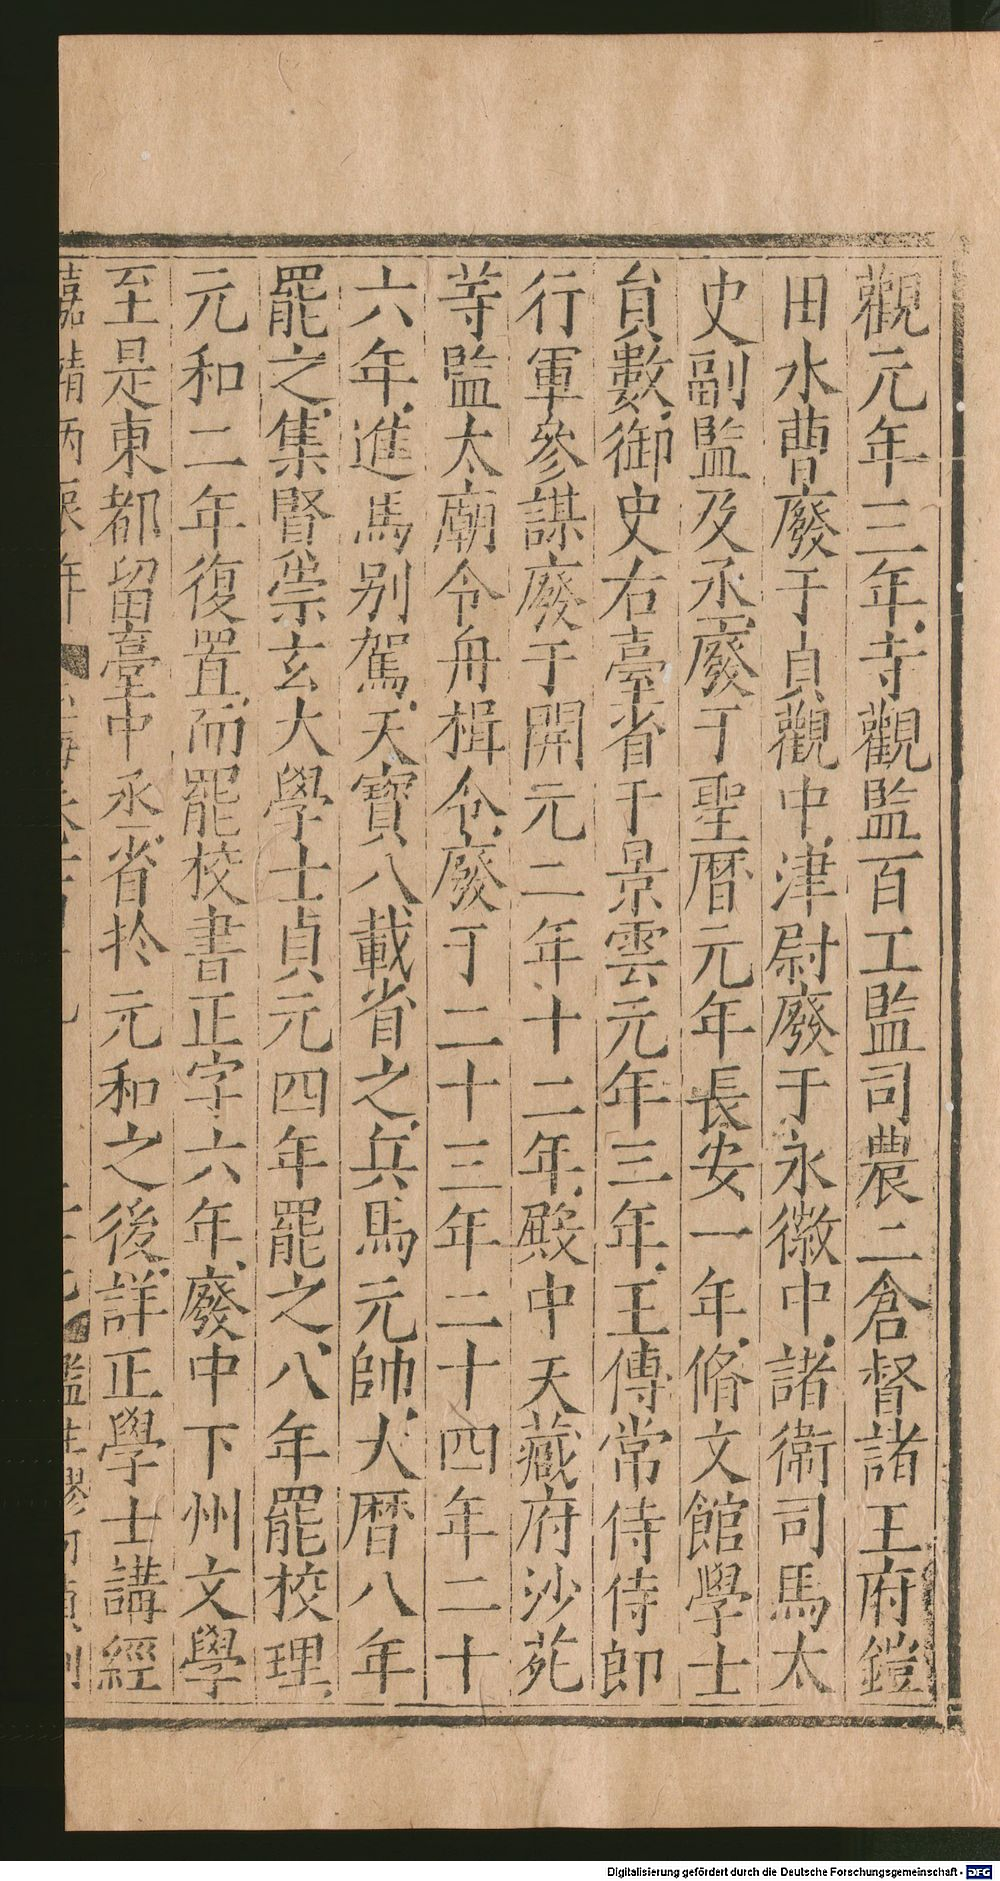 觀元年三年寺觀監百工監司農二倉督諸王府鎧
田水曹廢于貞觀中津尉廢于永徽中諸衛司馬太
史副監及丞廢于聖曆元年長安一年脩文館學士
貟數御史右臺省于景雲元年三年王傅常侍侍郎
行軍參謀廢于開元二年十二年殿中天藏府沙苑
等監太廟令舟楫令廢于二十三年二十四年二十
六年進馬别駕天寶八載省之兵馬元帥大曆八年
罷之集賢崇玄大學士貞元四年罷之八年罷校理
元和二年復置而罷校書正字六年廢中下州文學
至是東都留臺中丞省於元和之後詳正學士講經
嘉靖丙辰年
Digitalisierung gefördert durch die Deutsche Forschungsgemeinschaft - DFG